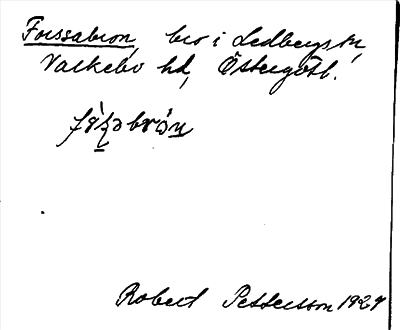 Forssabron, bro i Ledbergs sn,
Valkebo hd, Östergötl.
Robert Pettersson 1929